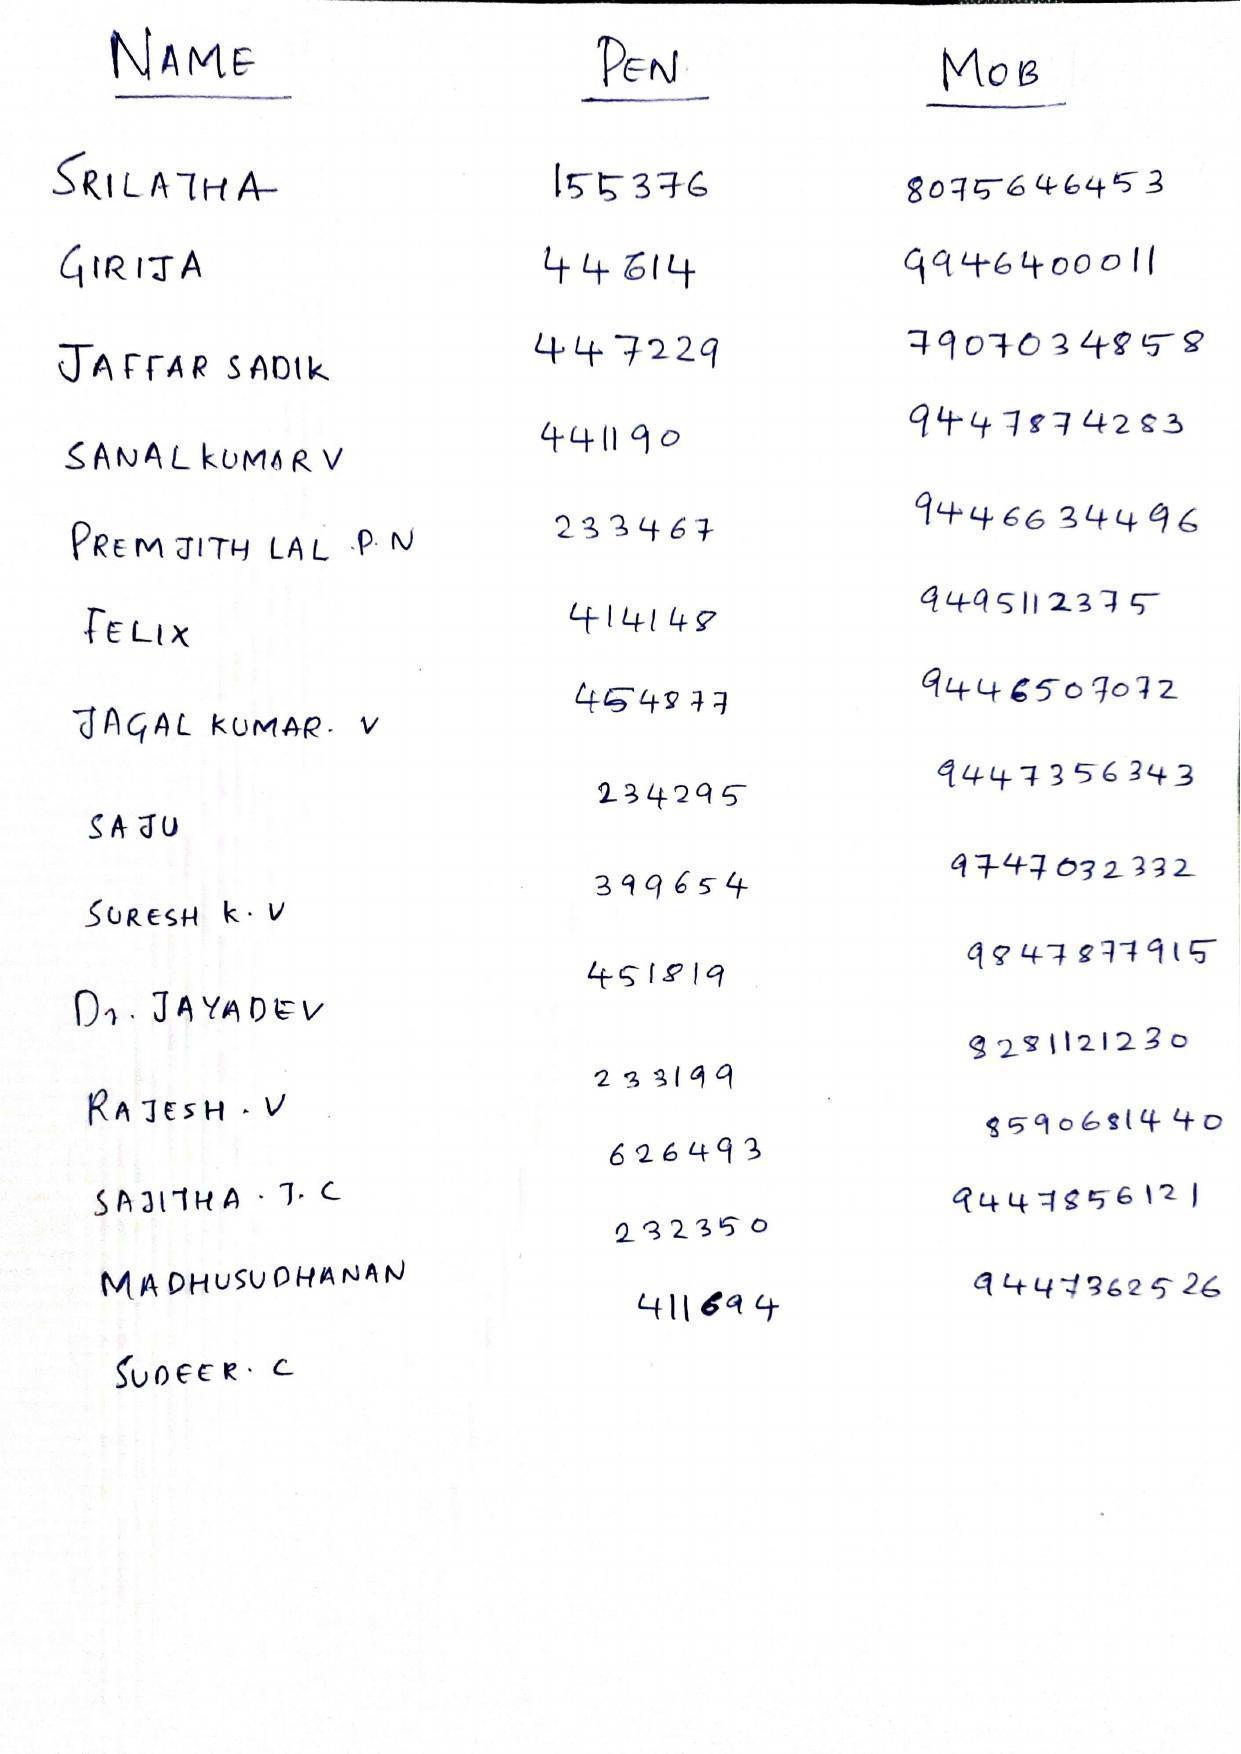 NAME PEN MOB
SRILATHA 155376 8075646453
GIRIJA 44614 9946400011
JAFFAR SADIK 447229 7907034858
SANALKUMAR V 441190 9447874283
PREMJITH LAL .P. N 233467 9446634496
FELIX 414148 9495112375
JAGAL KUMAR. V 454877 9446507072
SAJU 234295 9447356343
SURESH K. V 399654 9747032332
Dr. JAYADEV 451819 9847877915
RAJESH. V 233199 8281121230
SAJITHA. J. C 626493 8590681440
MADHUSUDHANAN 232350 9447856121
SUDEER. C 411694 9447362526